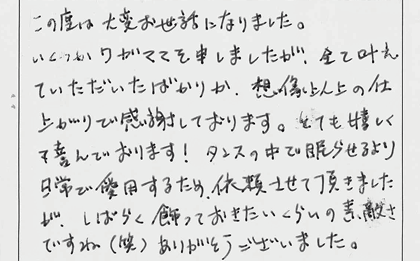 この度は大変お世話になりました。
いくつかワガママを申しましたが、全て叶え
ていただいたばかりか、想像以上の仕
上がりで感謝しております。とても嬉しく
喜んでおります！タンスの中で眠らせるより
日常で愛用するため、依頼させて頂きました
が、しばらく飾っておきたいくらいの素敵さ
ですね（笑）ありがとうございました。